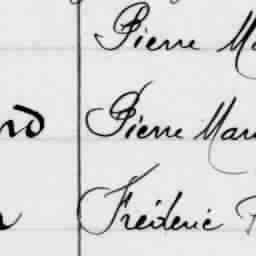 Pierre Ma
nd Pierre Mar
Fréderic